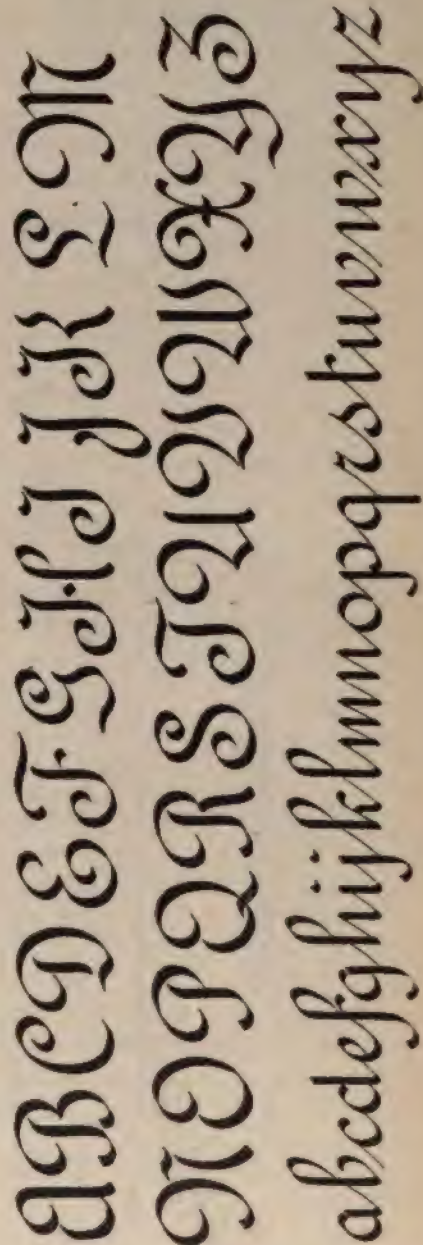 A B C D E F G H I J K L M
N O P Q R S T U V W X Y Z
a b c d e f g h i j k l m n o p q r s t u v w x y z